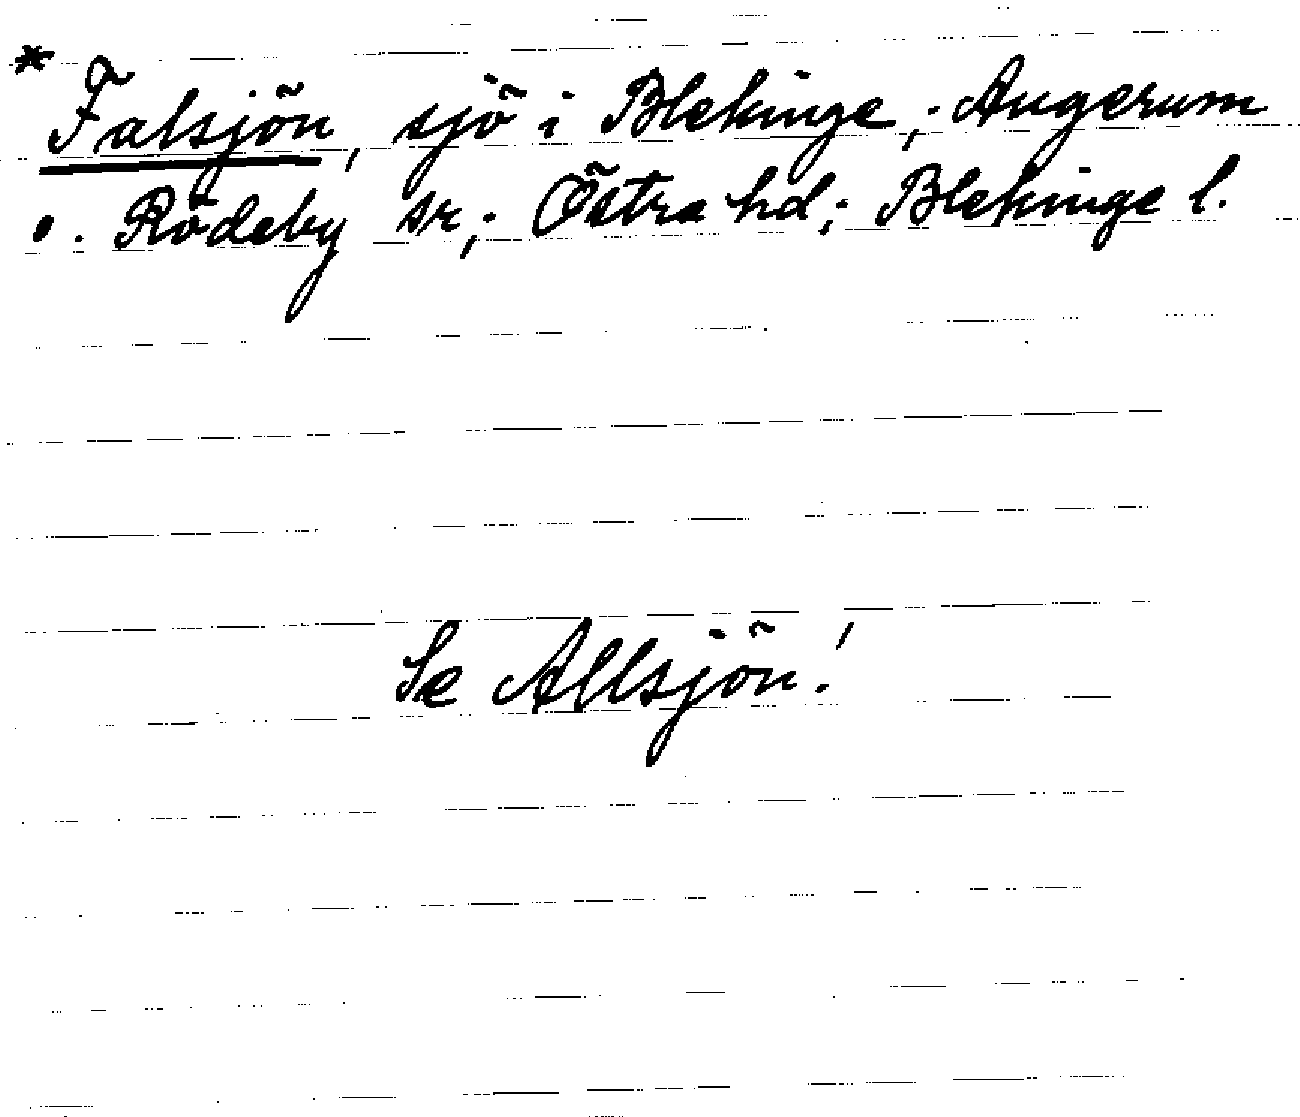 * Falsjön, sjö i Blekinge; Augerum
o. Rödeby sr; Östra hd; Blekinge l.
Se Allsjön!